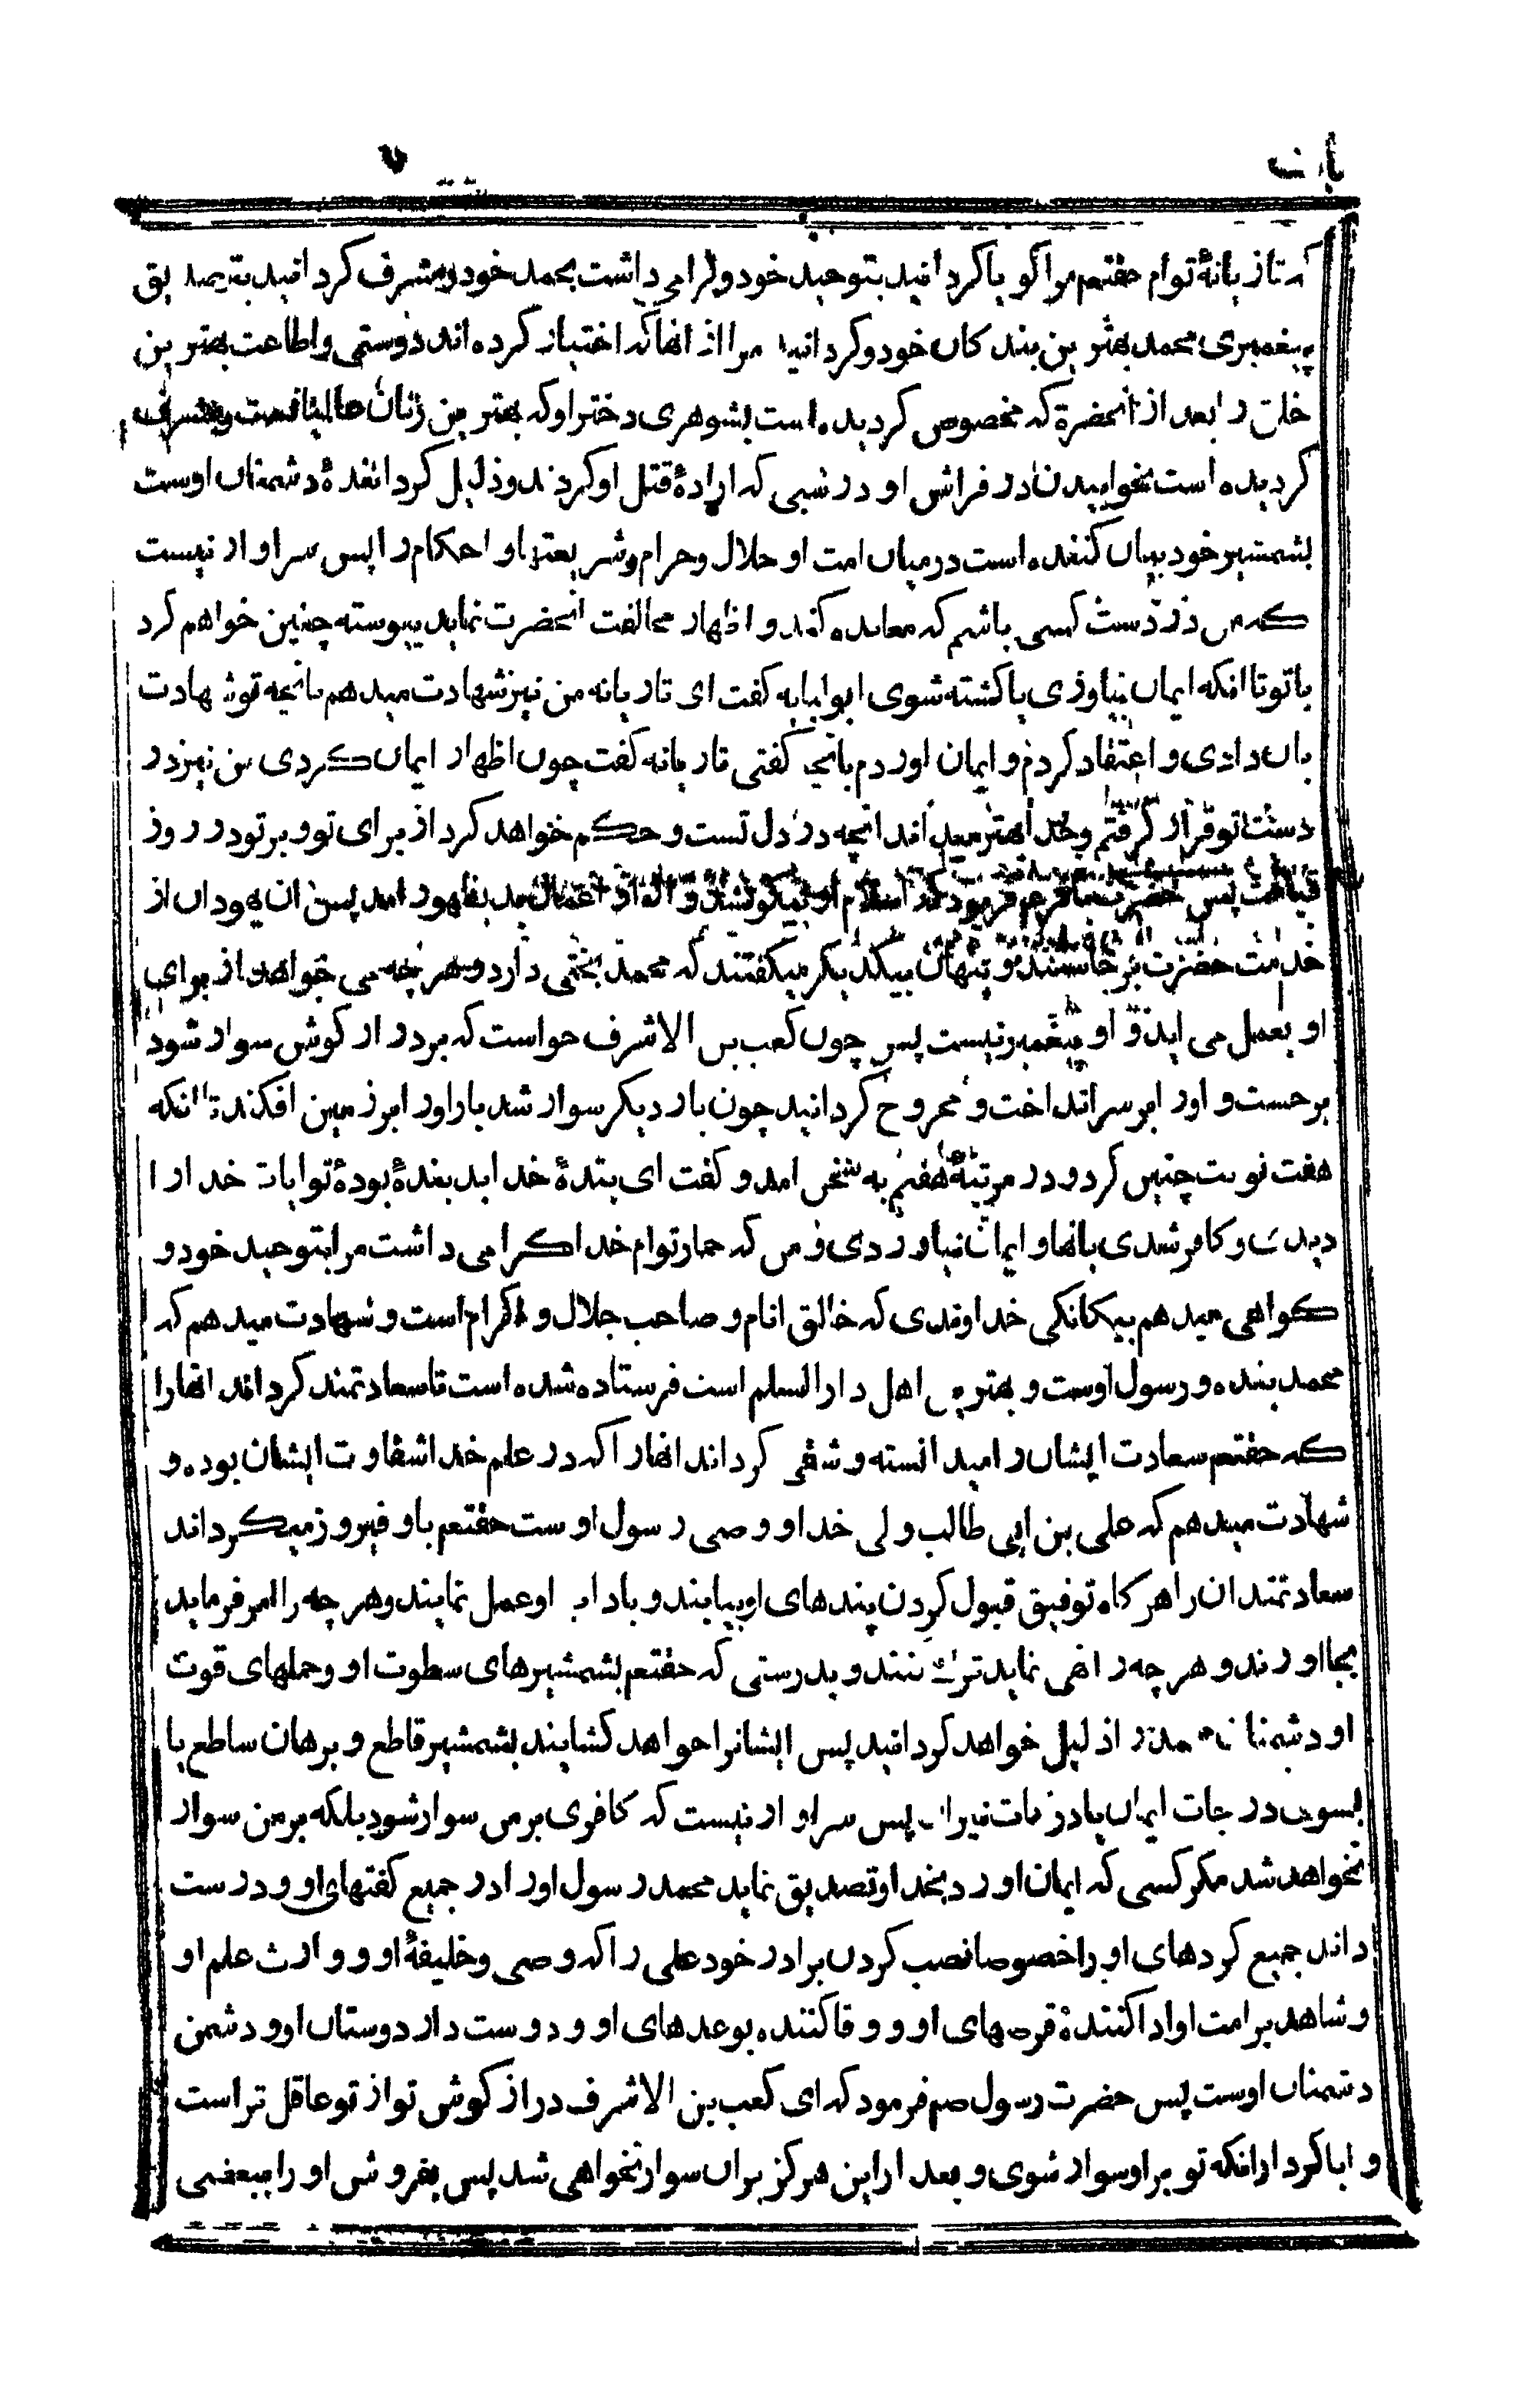 که تازیانهٔ توام حقتعم مرا گویا کردانید بتوحید خود و کرامی داشت بحمد خود و مشرف کردانید بتصدیق
پیغمبری محمد بهترین بندکان خود و کردانید مرا از انها که اختیار کرده‌اند دوستی و اطاعت بهترین
خلق را بعد از انحضرة که مخصوص کردیده است بشوهری دختر او که بهترین زنان عالمیانست و مشرف
کردیده است بخوابیدن در فراش او در شبی که ارادهٔ قتل او کردند و ذلیل کردانندهٔ دشمنان اوست
بشمشیر خود بیان کننده است در میان امت او حلال و حرام و شریعتها و احکام را پس سزاوار نیست
که من در دست کسی باشم که معانده کند و اظهار مخالفت انحضرت نماید پیوسته چنین خواهم کرد
با تو تا انکه ایمان بیاوری یا کشته شوی ابولبابه کفت ای تازیانه من نیز شهادت میدهم بانچه تو شهادت
بان دادی و اعتقاد کردم و ایمان اوردم بانچه کفتی تازیانه کفت چون اظهار ایمان کردی من نیز در
دست تو قرار کرفتم و خدا بهتر میداند انچه در دل تست و حکم خواهد کرد از برای تو و بر تو در روز
قیامت پس حضرت فرمود که اسلام او نیکو نشد و از او اعمال بد بظهور امد پس ان یهودان از
خدمت حضرت برخاستند و پنهان بیکدیکر میکفتند که محمد بختی دارد و هر چه می خواهد از برای
او بعمل می اید و او پیغمبر نیست پس چون کعب بن الاشرف خواست که بر درازکوش سوار شود
برجست و اورا بر سر انداخت و مجروح کردانید چون بار دیکر سوار شد باز اورا بر زمین افکند تا انکه
هفت نوبت چنین کرد و در مرتبهٔ هفتم به سخن امد و کفت ای بندهٔ خدا بد بندهٔ بودهٔ تو ایات خدا را
دیدی و کافر شدی بانها و ایمان نیاوردی و من که حمار توام خدا کرامی داشت مرا بتوحید خود و
کواهی میدهم بیکانکی خداوندی که خالق انام و صاحب جلال و اکرام است و شهادت میدهم که
محمد بنده و رسول اوست و بهترین اهل دار السلم است فرستاده شده است تا سعادتمند کرداند انها را
که حقتعم سعادت ایشان را میدانسته و شقی کرداند انها را که در علم خدا شقاوت ایشان بوده و
شهادت میدهم که علی بن ابی طالب ولی خدا و وصی رسول اوست حقتعم باو فیروز میکرداند
سعادتمندان را هر کاه توفیق قبول کردن پندهای او بیابند و باداب او عمل نمایند و هر چه را امر فرماید
بجا اورند و هر چه را نهی نماید ترک کنند و بدرستی که حقتعم بشمشیرهای سطوت او و حملهای قوت
او دشمنان محمد را ذلیل خواهد کردانید پس ایشانرا خواهد کشانید بشمشیر قاطع و برهان ساطع یا
بسوی درجات ایمان یا درکات نیران پس سزاوار نیست که کافری بر من سوار شود بلکه بر من سوار
نخواهد شد مکر کسی که ایمان اورد بخدا و تصدیق نماید محمد رسول اورا در جمیع کفتهای او و درست
داند جمیع کردهای او را خصوصا نصب کردن برادر خود علی را که وصی و خلیفهٔ او و وارث علم او
و شاهد بر امت او ادا کنندهٔ قرضهای او و وفا کننده بوعدهای او و دوست دار دوستان او و دشمن
دشمنان اوست پس حضرت رسول صم فرمود که ای کعب بن الاشرف درازکوش تو از تو عاقل تر است
و ابا کرد ازانکه تو بر او سوار شوی و بعد ازاین هرکز بران سوار نخواهی شد پس بفروش او را ببعضی